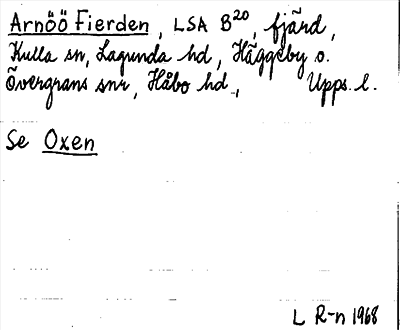 Arnöö Fierden, LSA B20, fjärd,
Kulla sn, Lagunda hd, Häggeby o.
Övergrans snr, Håbo hd., Upps. l.
Se Oxen
L R-n 1968